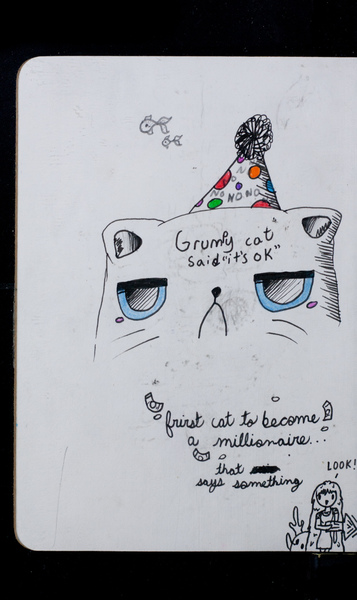 NO
NO NO NO
Grumpy cat
said "it's OK"
frirst cat to become
a millionaire...
that
says something
LOOK!